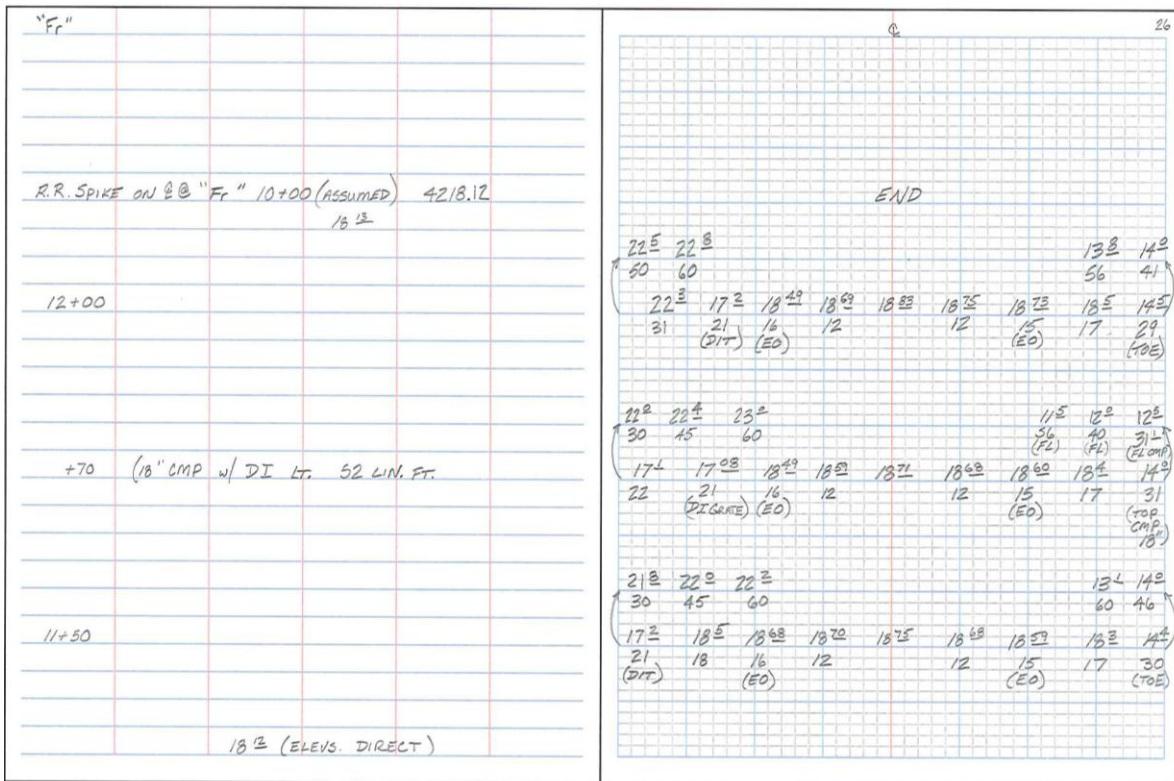 "Fr"
R.R. SPIKE ON ℄ @ "Fr" 10+00 (ASSUMED) 4218.12
18 13
12+00
+70 (18" CMP w/ DI LT. 52 LIN. FT.
11+50
18 12 (ELEVS. DIRECT)
℄ 26
END
22 5 22 8 13 8 14 0
50 60 56 41
22 3 17 2 18 49 18 69 18 83 18 75 18 73 18 5 14 5
31 21 16 12 12 15 17 29
(DIT) (EO) (EO) (TOE)
22 4 23 2 11 5 12 0 12 5
30 45 60 56 40 31 1
(FL) (FL) (FL CMP)
17 1 17 08 18 49 18 59 18 71 18 68 18 60 18 4 14 0
22 21 16 12 12 15 17 31
(DI GRATE) (EO) (EO) (TOP
CMP
18")
21 8 22 0 22 2 13 1 14 0
30 45 60 60 46
17 2 18 5 18 68 18 70 18 75 18 68 18 59 18 3 14 4
21 18 16 12 12 15 17 30
(DIT) (EO) (EO) (TOE)